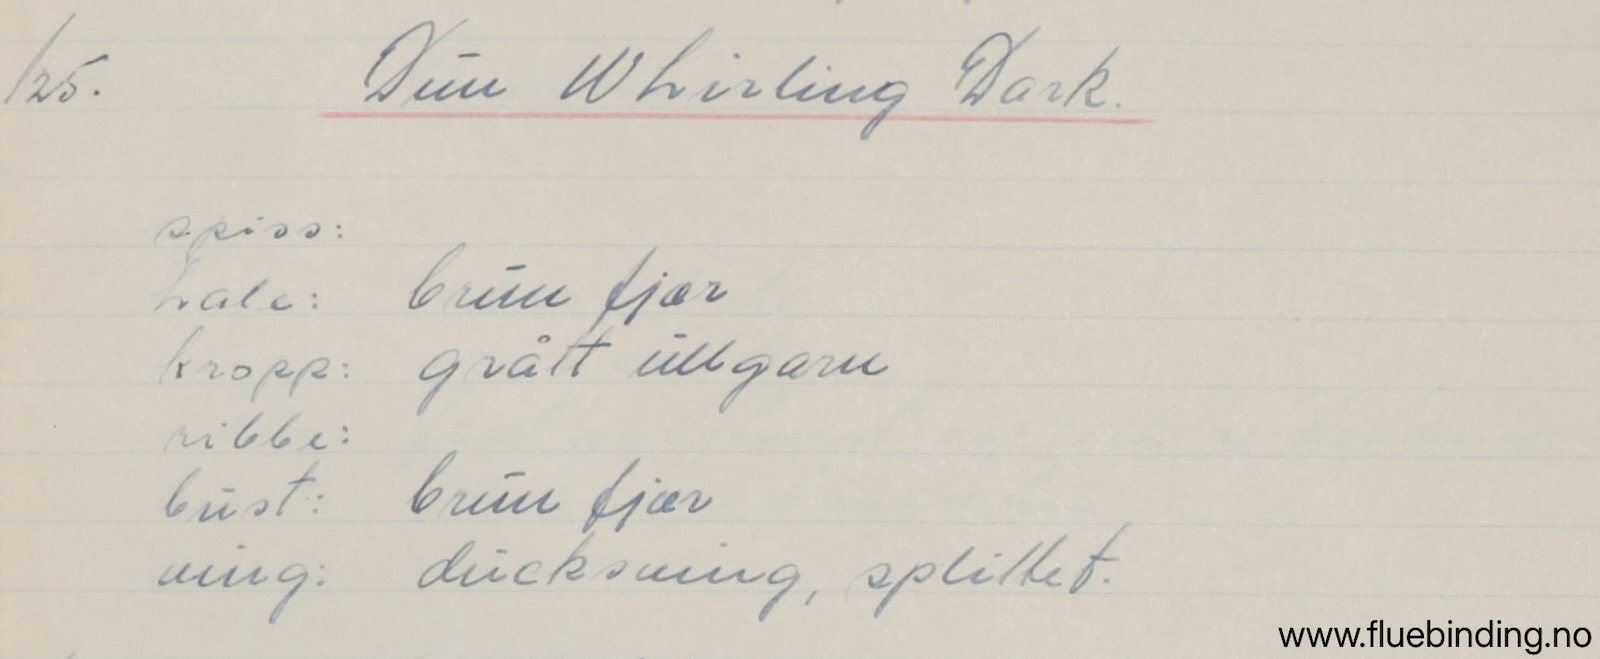 /25. Dun Whirling Dark.
spiss:
hale: brun fjær
kropp: grått ullgarn
ribbe:
bust: brun fjær
ving: ducksving, splittet.
www.fluebinding.no